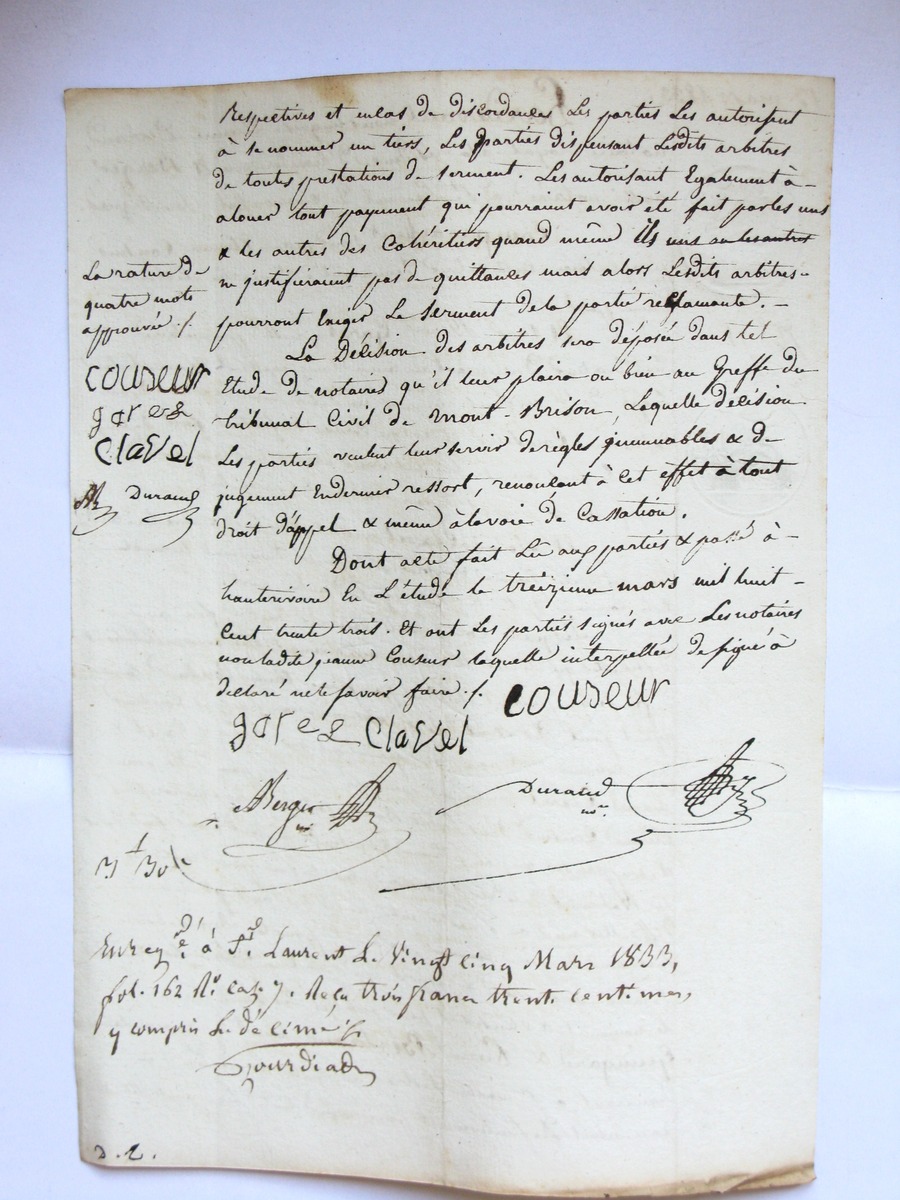 Respectives et encas de discordances Les parties Les autorisent
à se nommer un tiers, Les parties dispensant Lesdits arbitres
de toutes prestations de serment. Les autorisant Egalement à -
alouer tout payement qui pourraient avoir été fait par les uns
& les autres des Cohéritiers quand même ils uns ou les autres
n justifieraient pas de quittances mais alors Lesdits arbitres -
pourront Exiger Le Serment de la partie reclamante. -
La Décision des arbitres sera déposée dans tel
Etude de notaires qu'il leur plaira ou bien au Greffe du
tribunal Civil de mont-Brison, Laquelle décision
Les parties veulent leur servir de règles immuables & de
jugement Endernier ressort, renonçant à Cet effet à tout
droit d'appel & même à la voie de Cassation.
Dont acte fait Lu aux parties & passé à -
hauterivoire En L'étude le treizieme mars mil huit -
Cent trente trois. Et ont Les parties signés avec Les notaires
non ladite jeanne Couseur laquelle interpellée de signé à
declaré ne le savoir faire ./.
couseur
gorez Clavel
Berger
Durand
La rature de
quatre mots
approuvée ./.
couseur
gorez
Clavel
Durand
3f 30c
Enregé. à St. Laurent Le Vingt cinq Mars 1833,
fol. 162 Ro. Case 7. Reçu trois francs trente centimes,
y compris Le décime ./.
Gourdiad
D. L.